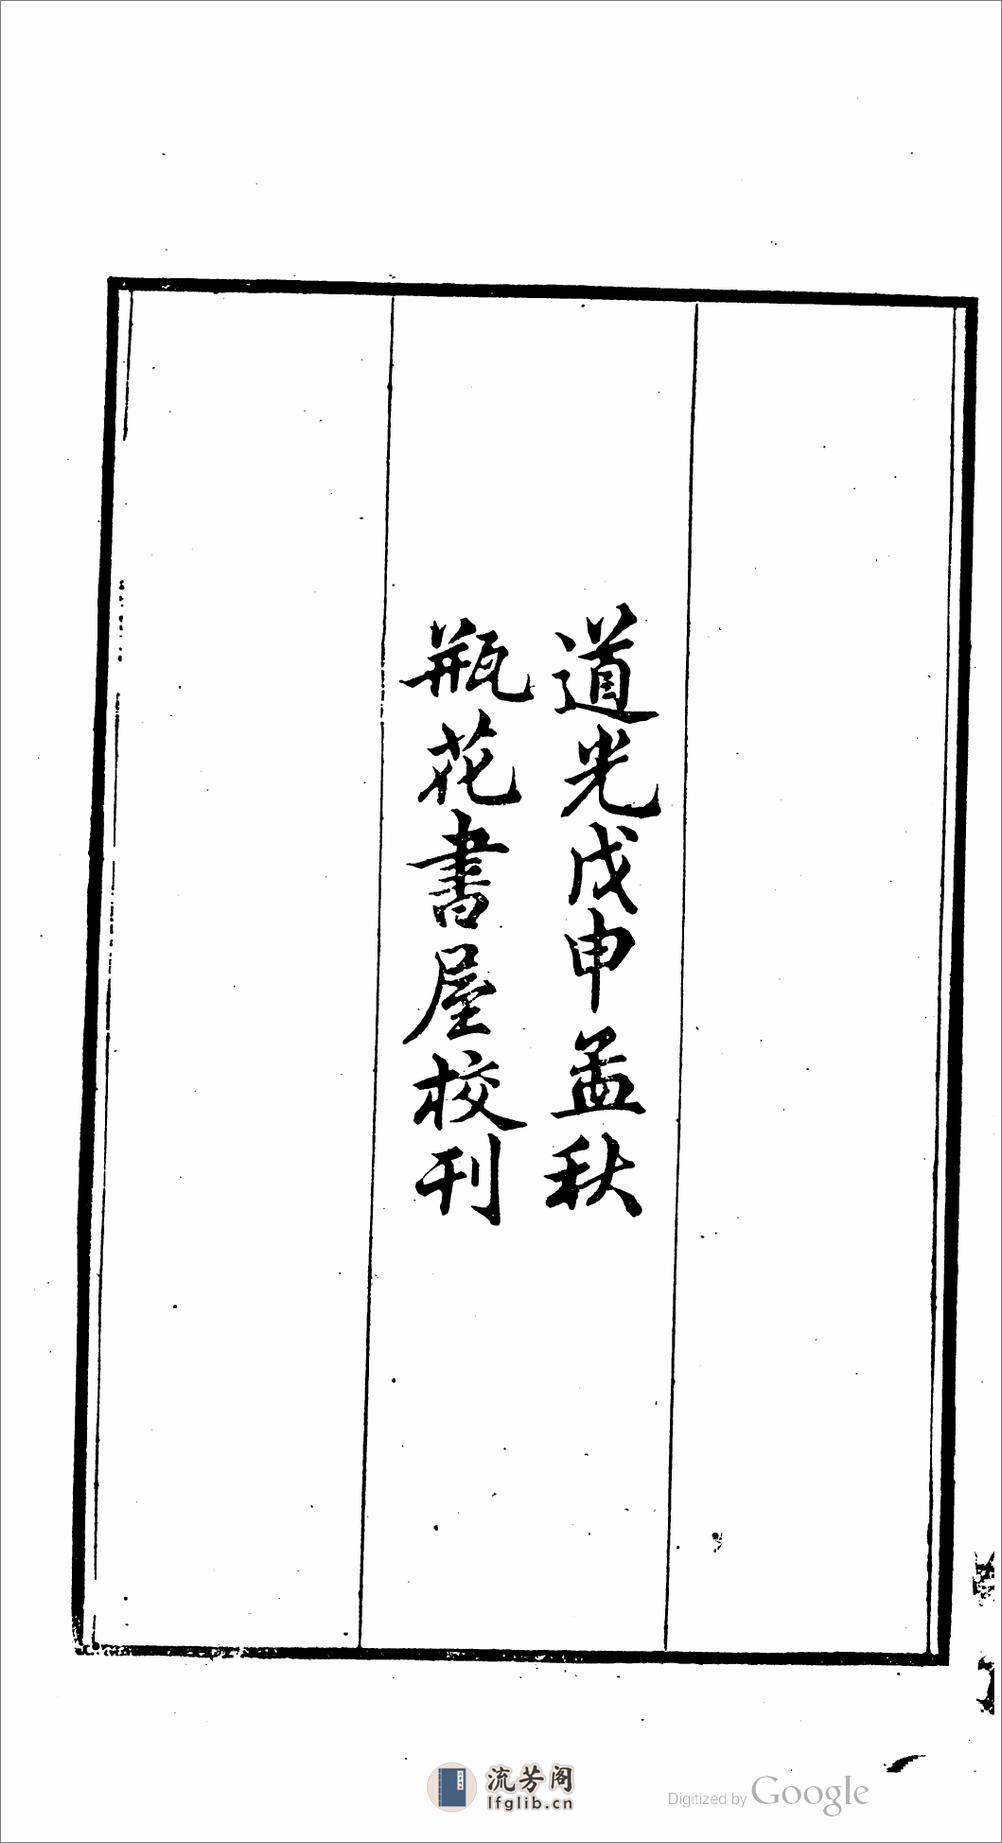 道光戊申孟秋
瓶花書屋校刊
流芳阁
lfglib.cn
Digitized by Google